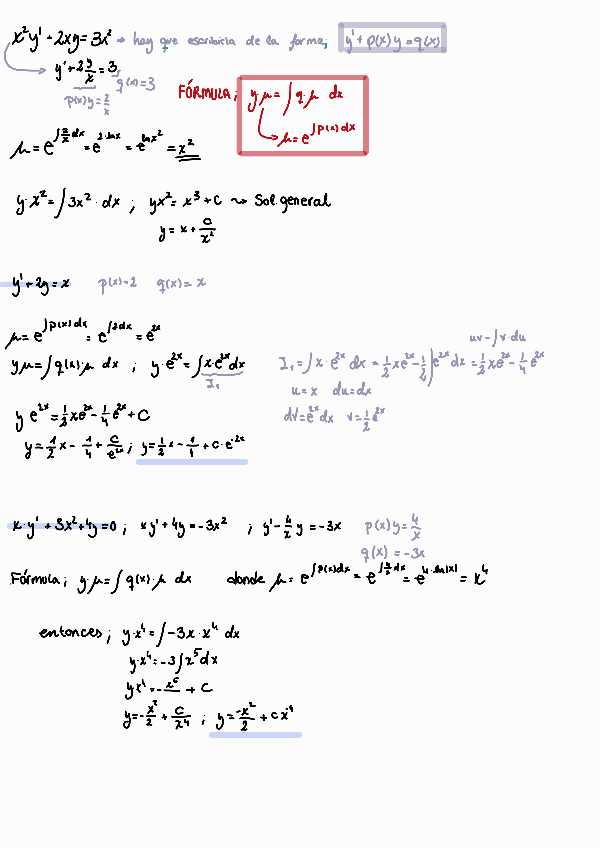 x²y' + 2xy = 3x² → hay que escribirla de la forma; y' + p(x)y = q(x)
y' + 2y/x = 3
p(x)y = 2/x
q(x) = 3
FÓRMULA; y μ = ∫ q·μ dx
μ = e^∫p(x)dx
μ = e^∫2/x dx = e^2·lnx = e^lnx² = x²
y·x² = ∫3x²·dx ; yx² = x³ + C ⤳ Sol. general
y = x + C/x²
y' + 2y = x p(x) = 2 q(x) = x
μ = e^∫p(x)dx = e^∫2dx = e^2x
yμ = ∫q(x)μ dx ; y·e^2x = ∫x·e^2x dx
I₁
uv - ∫v·du
I₁ = ∫x·e^2x dx = 1/2 xe^2x - 1/2 ∫e^2x dx = 1/2 xe^2x - 1/4 e^2x
u = x du = dx
dV = e^2x dx v = 1/2 e^2x
y e^2x = 1/2 xe^2x - 1/4 e^2x + C
y = 1/2 x - 1/4 + C/e^2x ; y = 1/2 x - 1/4 + C·e^-2x
x·y' + 3x² + 4y = 0 ; xy' + 4y = -3x² ; y' - 4/x y = -3x p(x)y = 4/x
q(x) = -3x
Fórmula; y·μ = ∫q(x)·μ dx donde μ = e^∫p(x)dx = e^∫4/x dx = e^4·ln|x| = x⁴
entonces; y·x⁴ = ∫-3x·x⁴ dx
y·x⁴ = -3∫x⁵dx
yx⁴ = -x⁶/2 + C
y = -x²/2 + C/x⁴ ; y = -x²/2 + Cx^-4